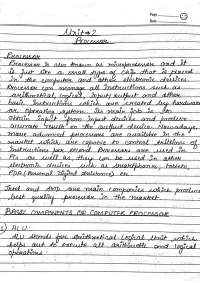 Page
Date
Unit-2
Processor
Processor
Processor is also known as microprocessor and it
is just like a small type of chip that is placed
in the computer and other electronic devices.
Processor can manage all instructions such as
arithmetical, logical, input/output and other
basic instructions which are created by hardware
or operating system. Its main job is to
obtain input from input devices and produce
accurate result on the output device. Nowadays,
more advanced processors are available in the
market which are capable to control trillions of
instructions per second. Processors are used in
PCs as well as they can be used in other
electronic devices such as smartphones, tablets,
PDA (Personal Digital Assistance) etc.
Intel and AMD are main companies which produce
best quality processor in the market.
BASIC COMPONENTS OF COMPUTER PROCESSOR
ALU:
ALU stands for Arithmetical Logical Unit which
helps out to execute all arithmetic and logical
operations.